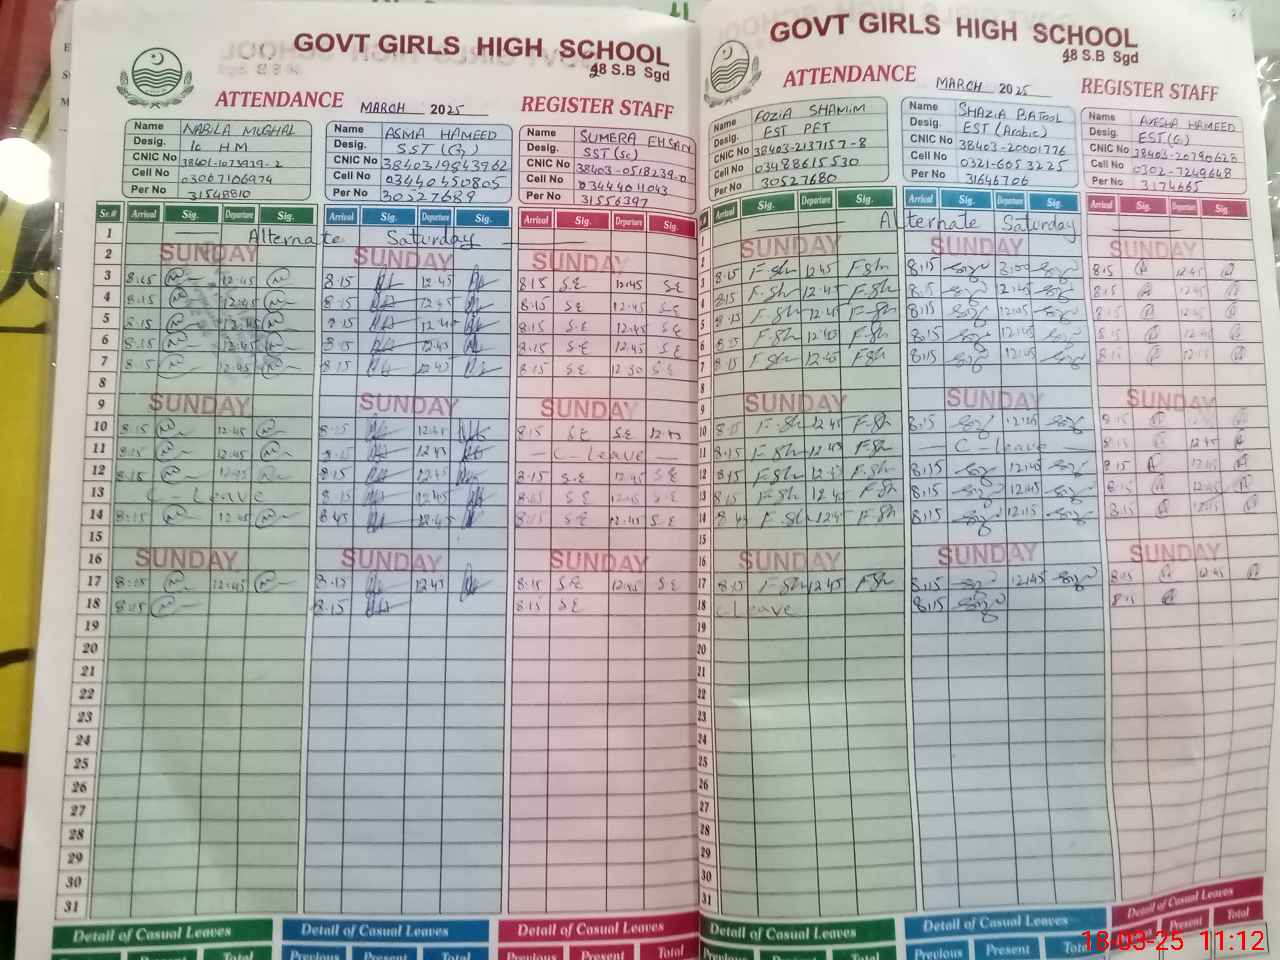 GOVT GIRLS HIGH SCHOOL
48 S.B Sgd
ATTENDANCE MARCH 2025 REGISTER STAFF
Name NABILA MUGHAL
Desig. Ic HM
CNIC No 38401-1073939-2
Cell No 03067106974
Per No 31548810
Name ASMA HAMEED
Desig. SST (G)
CNIC No 3840319843962
Cell No 03440450805
Per No 30527689
Name SUMERA EHSAN
Desig. SST (Sc)
CNIC No 38403-0518239-0
Cell No 03444011043
Per No 31556397
Sr.# Arrival Sig. Departure Sig. Arrival Sig. Departure Sig. Arrival Sig. Departure Sig.
1 Alternate Saturday
2 SUNDAY SUNDAY SUNDAY
3 8:15 12:45 8:15 12:45 8:15 S.E 12:45 S.E
4 8:15 12:45 8:15 12:45 8:15 S.E 12:45 S.E
5 8:15 12:45 8:15 12:45 8:15 S.E 12:45 S.E
6 8:15 12:45 8:15 12:45 8:15 S.E 12:45 S.E
7 8:15 12:45 8:15 12:45 8:15 S.E 12:30 S.E
8
9 SUNDAY SUNDAY SUNDAY
10 8:15 12:45 8:15 12:45 8:15 S.E S.E 12:45
11 8:15 12:45 8:15 12:45 C-Leave
12 8:15 12:45 8:15 12:45 8:15 S.E 12:45 S.E
13 C-Leave 8:15 12:45 8:15 S.E 12:45 S.E
14 8:15 12:45 8:45 12:45 8:15 S.E 12:45 S.E
15
16 SUNDAY SUNDAY SUNDAY
17 8:15 12:45 8:15 12:45 8:15 S.E 12:45 S.E
18 8:15 8:15 8:15 S.E
19
20
21
22
23
24
25
26
27
28
29
30
31
Detail of Casual Leaves Detail of Casual Leaves Detail of Casual Leaves
Previous Present Total Previous Present Total
GOVT GIRLS HIGH SCHOOL
48 S.B Sgd
ATTENDANCE MARCH 2025 REGISTER STAFF
Name FOZIA SHAMIM
Desig. EST PET
CNIC No 38403-2137157-8
Cell No 03488615530
Per No 30527680
Name SHAZIA BATOOL
Desig. EST (Arabic)
CNIC No 38403-20001776
Cell No 0321-6053225
Per No 31646706
Name AYESHA HAMEED
Desig. EST (G)
CNIC No 38403-20790628
Cell No 0302-7249648
Per No 3174665
Arrival Sig. Departure Sig. Arrival Sig. Departure Sig. Arrival Sig. Departure Sig.
1 Alternate Saturday
2 SUNDAY SUNDAY SUNDAY
3 8:15 F-Sh 12:45 F-Sh 8:15 8:15 12:45
4 8:15 F-Sh 12:45 F-Sh 8:15 12:45 8:15 12:45
5 8:15 F-Sh 12:45 F-Sh 8:15 12:05 8:15 12:45
6 8:15 F-Sh 12:45 F-Sh 8:15 12:45 8:15 12:45
7 8:15 F-Sh 12:45 F-Sh 8:15 12:45 8:15
8
9 SUNDAY SUNDAY SUNDAY
10 8:15 F-Sh 12:45 F-Sh 8:15 12:45 8:15
11 8:15 F-Sh 12:45 F-Sh C-Leave 8:15 12:45
12 8:15 F-Sh 12:45 F-Sh 8:15 12:40 8:15
13 8:15 F-Sh 12:45 F-Sh 8:15 12:45 8:15 12:45
14 8:45 F-Sh 12:45 F-Sh 8:15 12:15 8:15
15
16 SUNDAY SUNDAY SUNDAY
17 8:15 F-Sh 12:45 F-Sh 8:15 12:45 8:15 12:45
18 C Leave 8:15 8:15
19
20
21
22
23
24
25
26
27
28
29
30
31
Detail of Casual Leaves Detail of Casual Leaves Detail of Casual Leaves
Previous Present Total Previous Present Present Total
18-03-25 11:12